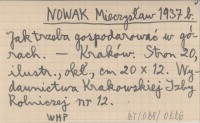 NOWAK Mieczysław 1937 b.
Jak trzeba gospodarować w gó-
rach. — Kraków. Stron 20,
ilustr., okł., cm 20 x 12. Wy-
dawnictwa Krakowskiej Izby
Rolniczej nr 12.
WHP